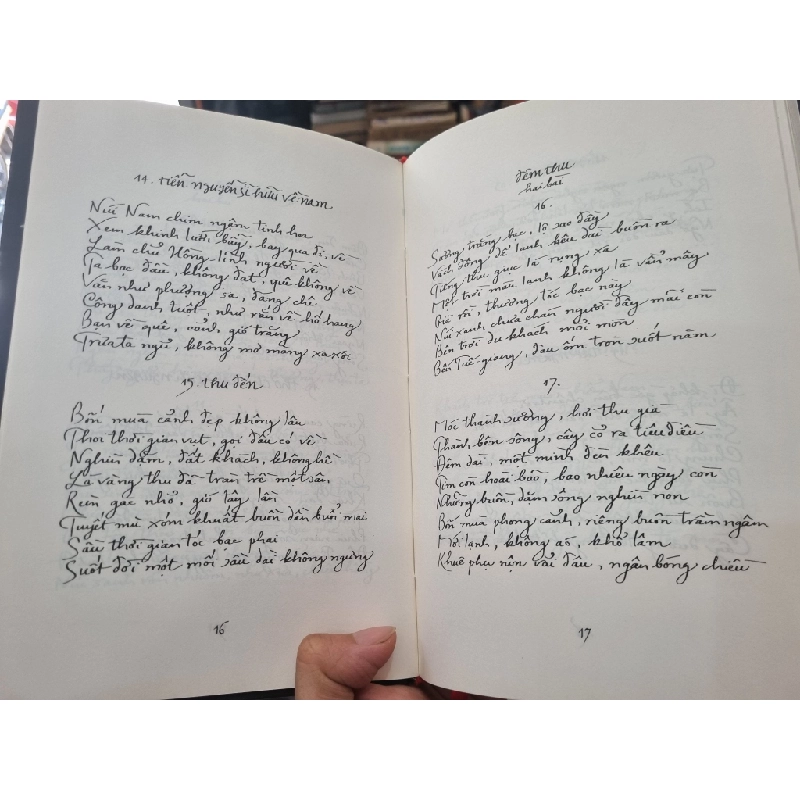 14. Tiễn Nguyễn Sĩ Hữu về Nam
Núi Nam chim ngậm tình hoa
Xem khinh lưới bẫy, bay qua đi, về
Làm chủ Hồng lĩnh người về
Ta bạc đầu, không đạt, quê không về
Vẫn như phượng sa, đang chí
Công danh tuột, như rắn về hố hang
Bạn về quê, với gió trăng
Trưa ta ngủ, không mơ màng xa xôi
15. Thu đến
Bốn mùa cảnh đẹp không lâu
Thoi thời gian vụt, gọi đâu có về
Nghìn dặm, đất khách, không hề
Lá vàng thu đã tràn trề một sân
Rèm gác nhỏ, gió lây lần
Tuyệt mù xóm khuất buồn dần buổi mai
Sầu thời gian tóc bạc phai
Suốt đời một mối sầu dài không ngừng
16
Đêm thu
hai bài
16.
Sương trắng bạc, lộ xao đầy
Vách đông, dế lạnh kêu đầu buôn ra
Tiếng thu giục lá rụng xa
Một trời màu lạnh không là vẩn mây
Già rồi, thương tóc bạc này
Núi xanh chưa chán người đây mãi còn
Bên trời du khách mỏi mòn
Bến Tiết giang, đau ốm tròn suốt năm
17.
Mới thanh sương, hơi thu già
Thành bên sông, cây cỏ ra tiêu điều
Đêm dài, một mình đèn khêu
Tìm còn hoài bão, bao nhiêu ngày còn
Những buồn, dặm sông nghìn non
Bốn mùa phong cảnh, riêng buồn trầm ngâm
Mới lạnh, không áo, khổ lắm
Khuê phụ nện vải đâu, ngân bóng chiều
17